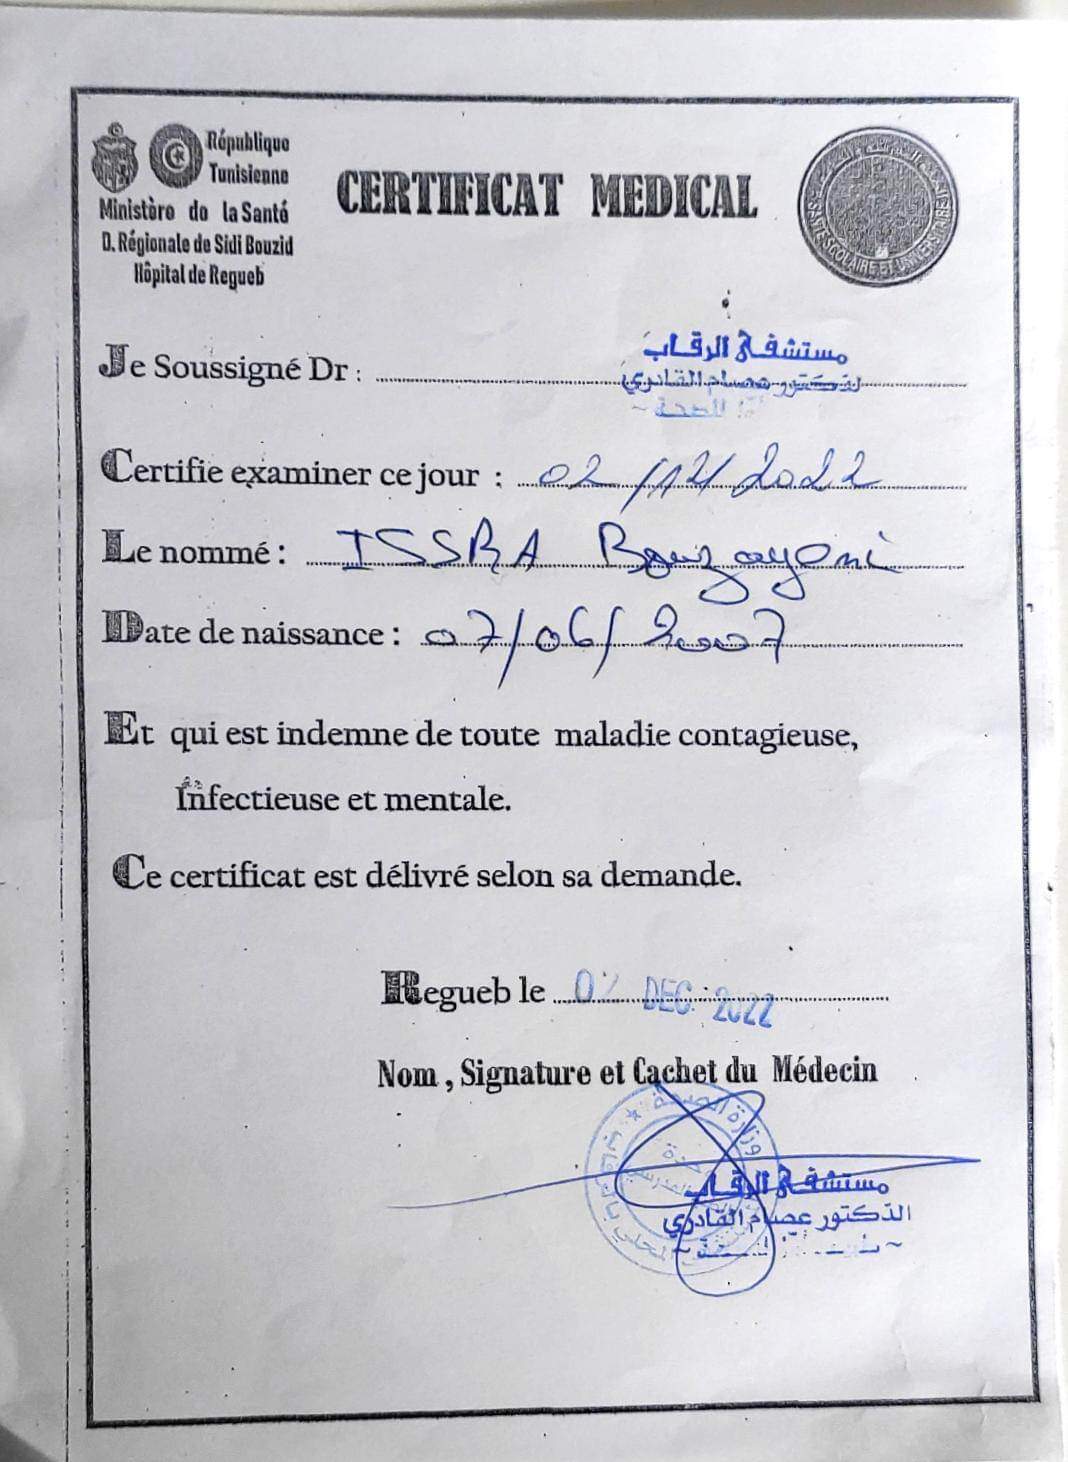 République
Tunisienne
Ministère de la Santé
D. Régionale de Sidi Bouzid
Hôpital de Regueb
CERTIFICAT MEDICAL
SANTE SCOLAIRE ET UNIVERSITAIRE
Je Soussigné Dr :
مستشفى الرقاب
الدكتور عصام القادري
الصحة ~
Certifie examiner ce jour : 02/12/2022
Le nommé : ISSRA Bouzayeni
Date de naissance : 07/06/2007
Et qui est indemne de toute maladie contagieuse,
Infectieuse et mentale.
Ce certificat est délivré selon sa demande.
Regueb le 02 DEC. 2022
Nom , Signature et Cachet du Médecin
وزارة الصحة
مستشفى الرقاب
الدكتور عصام القادري